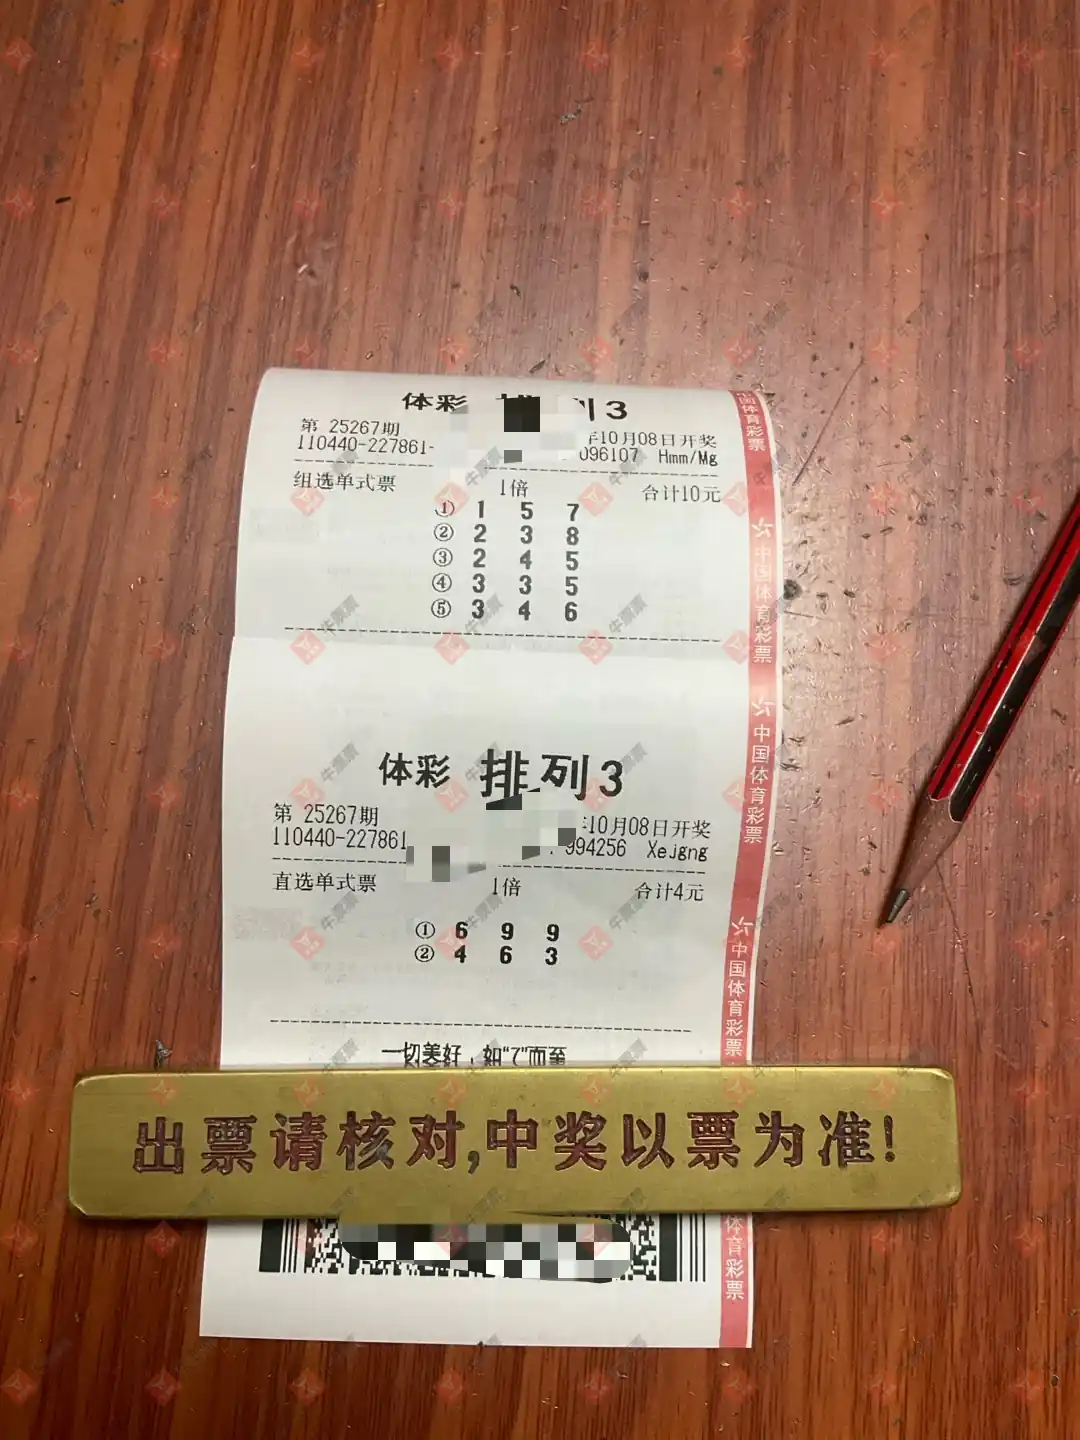 体彩 排列3
第 25267期
年10月08日开奖
110440-227861-
096107 Hmm/Mg
组选单式票 1倍 合计10元
① 1 5 7
② 2 3 8
③ 2 4 5
④ 3 3 5
⑤ 3 4 6
体彩 排列3
第 25267期
年10月08日开奖
110440-227861
994256 Xejgng
直选单式票 1倍 合计4元
① 6 9 9
② 4 6 3
一切美好,如"7"而至
出票请核对,中奖以票为准!
中国体育彩票
中国体育彩票
中国体育彩票
中国体育彩票
体育彩票
牛票票